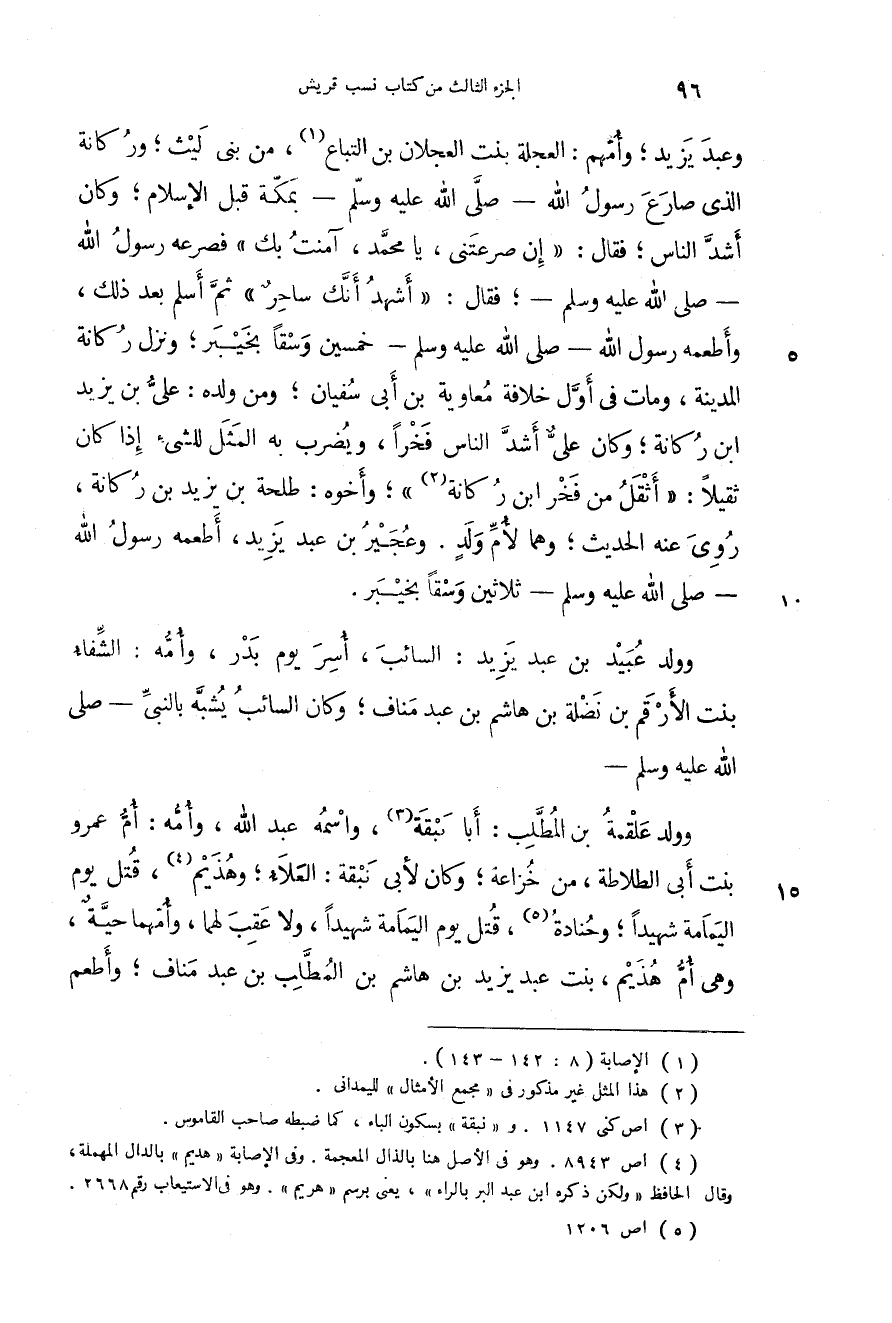 ٩٦ الجزء الثالث من كتاب نسب قريش
وعبدَ يَزيد ؛ وأُمُّهم : العجلة بنت العجلان بن التباع(١) ، من بنى لَيْث ؛ ورُكانة
الذى صارَعَ رسولُ الله — صلَّى الله عليه وسلّم — بمَكّة قبل الإسلام ؛ وكان
أشدَّ الناس ؛ فقال : « إن صرعتَنى ، يا محمَّد ، آمنتُ بك » فصرعه رسولُ الله
— صلى الله عليه وسلم — ؛ فقال : « أشهدُ أنَّك ساحرٌ » ثمَّ أسلم بعد ذلك ،
وأطعمه رسول الله — صلى الله عليه وسلم — خمسين وَسْقاً بخَيْبَر ؛ ونزل ركانة
٥
المدينة ، ومات فى أوَّل خلافة مُعاوية بن أبى سُفيان ؛ ومن ولده : علىُّ بن يزيد
ابن رُكانة ؛ وكان علىٌّ أشدَّ الناس فَخْراً ، ويُضرب به المَثَل للشىء إذا كان
ثقيلاً : « أثْقَلُ من فَخْر ابن رُكانة(٢) » ؛ وأخوه : طلحة بن يزيد بن ركانة ،
رُوِىَ عنه الحديث ؛ وهما لأُمِّ وَلَدٍ . وعُجَيْرُ بن عبد يَزِيد ، أطعمه رسولُ الله
— صلى الله عليه وسلم — ثلاثين وَسْقاً بخيْبَر .
١٠
وولد عُبَيْد بن عبد يَزِيد : السائبَ ، أُسِرَ يوم بَدْر ، وأُمُّه : الشِّفاء
بنت الأَرْقَم بن نَضْلة بن هاشم بن عبد مَناف ؛ وكان السائبُ يُشبَّه بالنبىِّ — صلى
الله عليه وسلم —
وولد عَلْقمةُ بن المُطَّلِب : أبا نَبْقَة(٣) ، واسْمُه عبد الله ، وأُمُّه : أُمُّ عمرو
بنت أبى الطلاطة ، من خُزاعة ؛ وكان لأبى نَبْقة : العَلاَء ؛ وهُذَيْم(٤) ، قُتل يوم
١٥
اليَمَامة شهيداً ؛ وجُنادةُ(٥) ، قُتل يوم اليَمَامة شهيداً ، ولا عَقِبَ لهما ، وأمّهما حيَّةٌ ،
وهى أُمُّ هُذَيْم ، بنت عبد يزيد بن هاشم بن المُطَّلِب بن عبد مَناف ؛ وأطعم
(١) الإصابة (٨ : ١٤٢ – ١٤٣) .
(٢) هذا المثل غير مذكور فى « مجمع الأمثال » لليمدانى .
(٣) اص كنى ١١٤٧ . و « نبقة » بسكون الباء ، كما ضبطه صاحب القاموس .
(٤) اص ٨٩٤٣ . وهو فى الأصل هنا بالذال المعجمة . وفى الإصابة « هديم » بالدال المهملة ،
وقال الحافظ « ولكن ذكره ابن عبد البر بالراء » ، يعنى برسم « هريم » . وهو فى الاستيعاب رقم ٢٦٦٨ .
(٥) اص ١٢٠٦